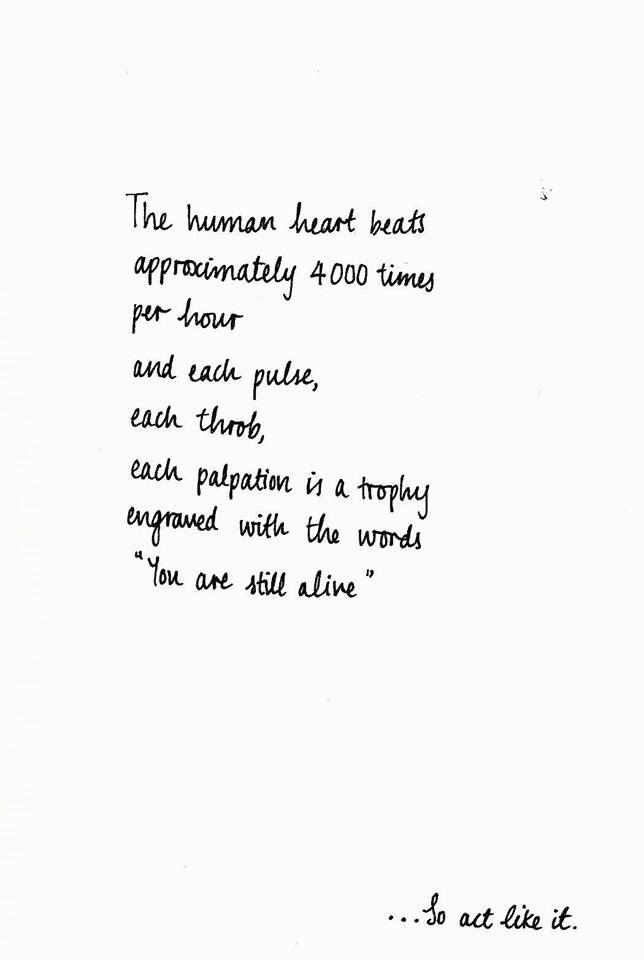 The human heart beats
approximately 4000 times
per hour
and each pulse,
each throb,
each palpation is a trophy
engraved with the words
"You are still alive"
...So act like it.